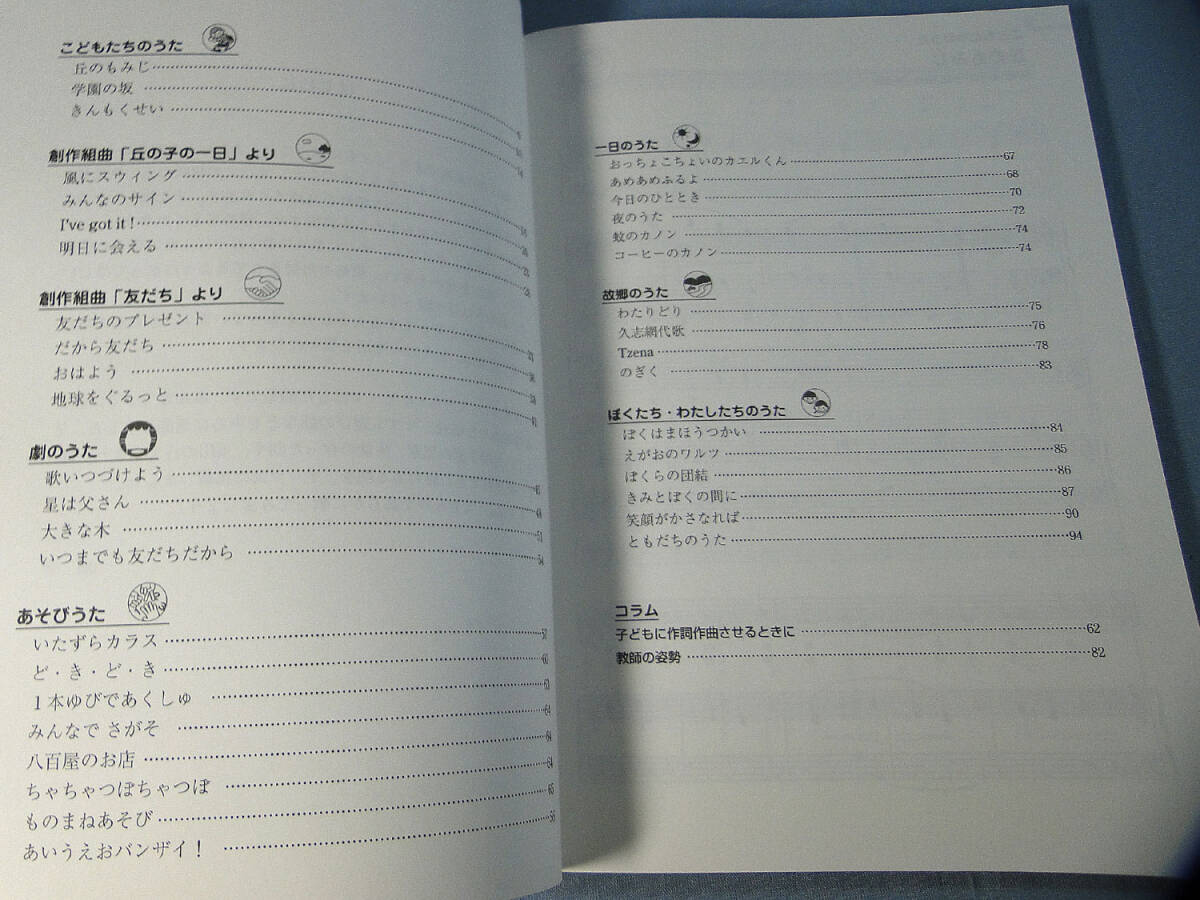 こどもたちのうた
丘のもみじ
学園の坂
きんもくせい
創作組曲「丘の子の一日」より
風にスウィング
みんなのサイン
I've got it !
明日に会える
創作組曲「友だち」より
友だちのプレゼント
だから友だち
おはよう
地球をぐるっと
劇のうた
歌いつづけよう
星は父さん
大きな木
いつまでも友だちだから
あそびうた
いたずらカラス
ど・き・ど・き
1本ゆびであくしゅ
みんなで さがそ
八百屋のお店
ちゃちゃつぼちゃつぼ
ものまねあそび
あいうえおバンザイ!
一日のうた
おっちょこちょいのカエルくん 67
あめあめふるよ 68
今日のひととき 70
夜のうた 72
蚊のカノン 74
コーヒーのカノン 74
故郷のうた
わたりどり 75
久志網代歌 76
Tzena 78
のぎく 83
ぼくたち・わたしたちのうた
ぼくはまほうつかい 84
えがおのワルツ 85
ぼくらの団結 86
きみとぼくの間に 87
笑顔がかさなれば 90
ともだちのうた 94
コラム
子どもに作詞作曲させるときに 62
教師の姿勢 82